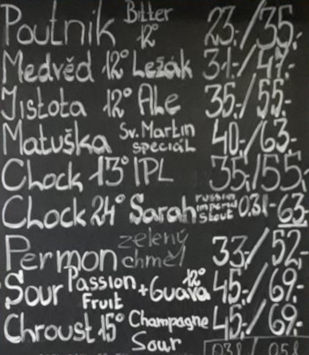 Poutnik Bitter 12° 23.-/35.-
Medvěd 12° Ležák 31.-/47.-
Jistota 12° Ale 35.-/55.-
Matuška Sv. Martin special 40.-/63.-
Clock 13° IPL 35,/55,-
Clock 24° Sarah russian imperial stout 0.3l- 63.-
Permon zelený chmel 33.-/52.-
Sour Passion Fruit + Guava 12° 45.-/69.-
Chroust 15° Champagne Sour 45.-/69.-
0.3l 0.5l